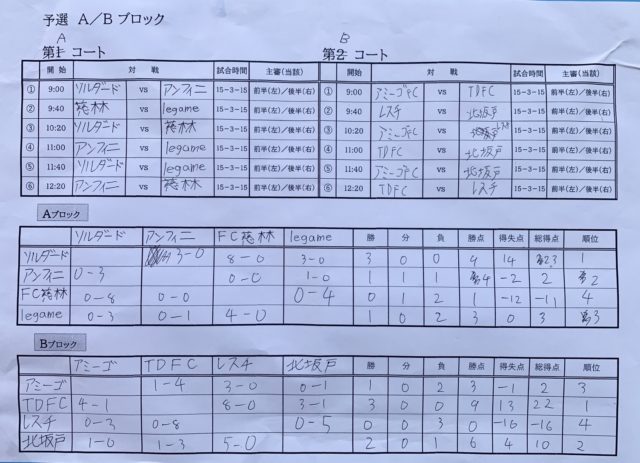 予選 A／Bブロック
A
第1 コート
B
第2 コート
開始 対戦 試合時間 主審(当該)
① 9:00 ソルダード vs アンフィニ 15-3-15 前半(左)／後半(右)
② 9:40 vs legame 15-3-15 前半(左)／後半(右)
③ 10:20 ソルダード vs 15-3-15 前半(左)／後半(右)
④ 11:00 アンフィニ vs legame 15-3-15 前半(左)／後半(右)
⑤ 11:40 ソルダード vs legame 15-3-15 前半(左)／後半(右)
⑥ 12:20 アンフィニ vs 15-3-15 前半(左)／後半(右)
開始 対戦 試合時間 主審(当該)
① 9:00 アミーゴFC vs TDFC 15-3-15 前半(左)／後半(右)
② 9:40 レスチ vs 北坂戸 15-3-15 前半(左)／後半(右)
③ 10:20 アミーゴFC vs 15-3-15 前半(左)／後半(右)
④ 11:00 TDFC vs 北坂戸 15-3-15 前半(左)／後半(右)
⑤ 11:40 アミーゴFC vs 北坂戸 15-3-15 前半(左)／後半(右)
⑥ 12:20 TDFC vs レスチ 15-3-15 前半(左)／後半(右)
Aブロック
ソルダード アンフィニ FC legame 勝 分 負 勝点 得失点 総得点 順位
ソルダード 3-0 8-0 3-0 3 0 0 9 14 23 1
アンフィニ 0-3 0-0 1-0 1 1 1 4 -2 2 2
FC 0-8 0-0 0-4 0 1 2 1 -12 -11 4
legame 0-3 0-1 4-0 1 0 2 3 0 3 3
Bブロック
アミーゴ TDFC レスチ 北坂戸 勝 分 負 勝点 得失点 総得点 順位
アミーゴ 1-4 3-0 0-1 1 0 2 3 -1 2 3
TDFC 4-1 8-0 3-1 3 0 0 9 13 22 1
レスチ 0-3 0-8 0-5 0 0 3 0 -16 -16 4
北坂戸 1-0 1-3 5-0 2 0 1 6 4 10 2